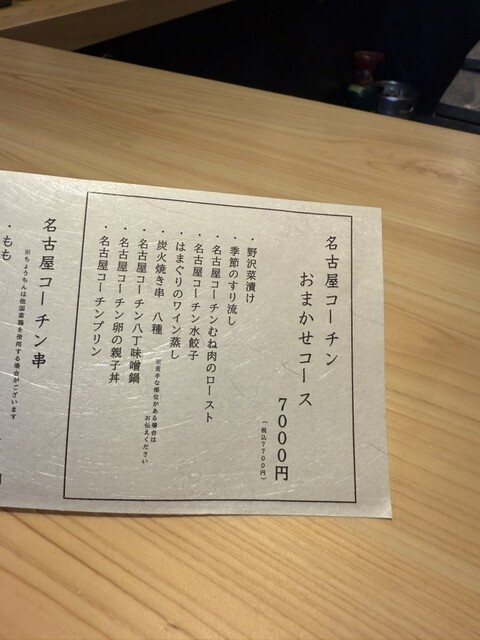 名古屋コーチン
おまかせコース
7000円
(税込7700円)
・野沢菜漬け
・季節のすり流し
・名古屋コーチンむね肉のロースト
・名古屋コーチン水餃子
・はまぐりのワイン蒸し
・炭火焼き串 八種
※苦手な部位がある場合は
お伝えください
・名古屋コーチン八丁味噌鍋
・名古屋コーチン卵の親子丼
・名古屋コーチンプリン
名古屋コーチン串
※ちょうちんは他国産鶏を使用する場合がございます
・もも